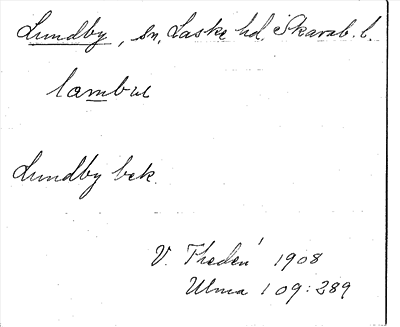 Lundby, sn, Laske hd. Skarab. l.
lambɯ
Lundby bek.
V. Thedén 1908
Ulma 109:289